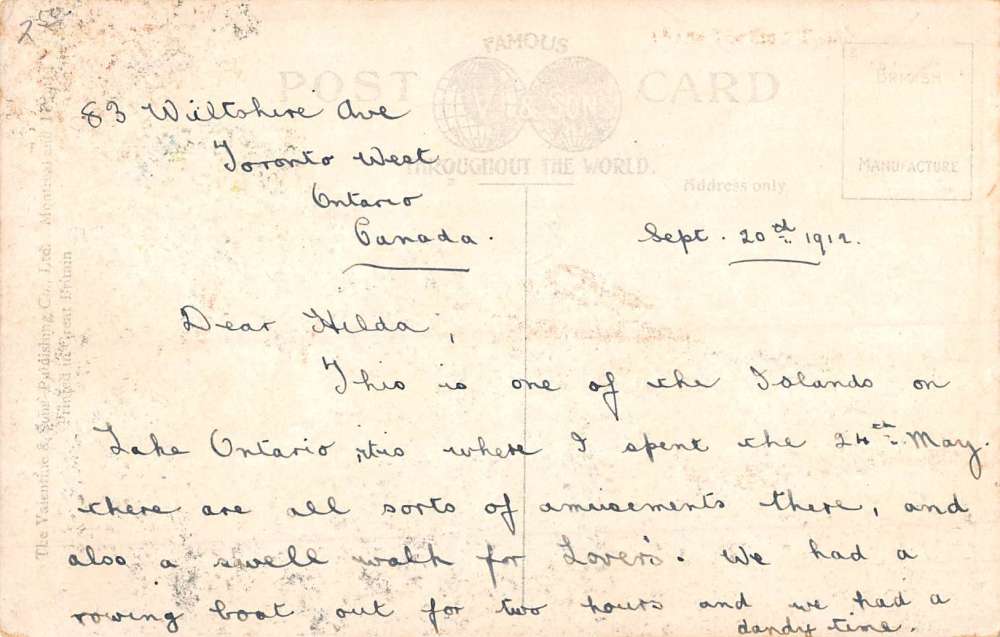 POST CARD
FAMOUS
THROUGHOUT THE WORLD.
Address only
BRITISH
MANUFACTURE
The Valentine & Sons' Publishing Co., Ltd. Montreal and
Printed in Great Britain
83 Wiltshire Ave
Toronto West
Ontario
Canada.
Sept. 20th 1912.
Dear Hilda,
This is one of the Islands on
Lake Ontario, itis where I spent the 24th May.
there are all sorts of amusements there, and
also a swell walk for Lover's. We had a
rowing boat out for two hours and we had a
dandy time.